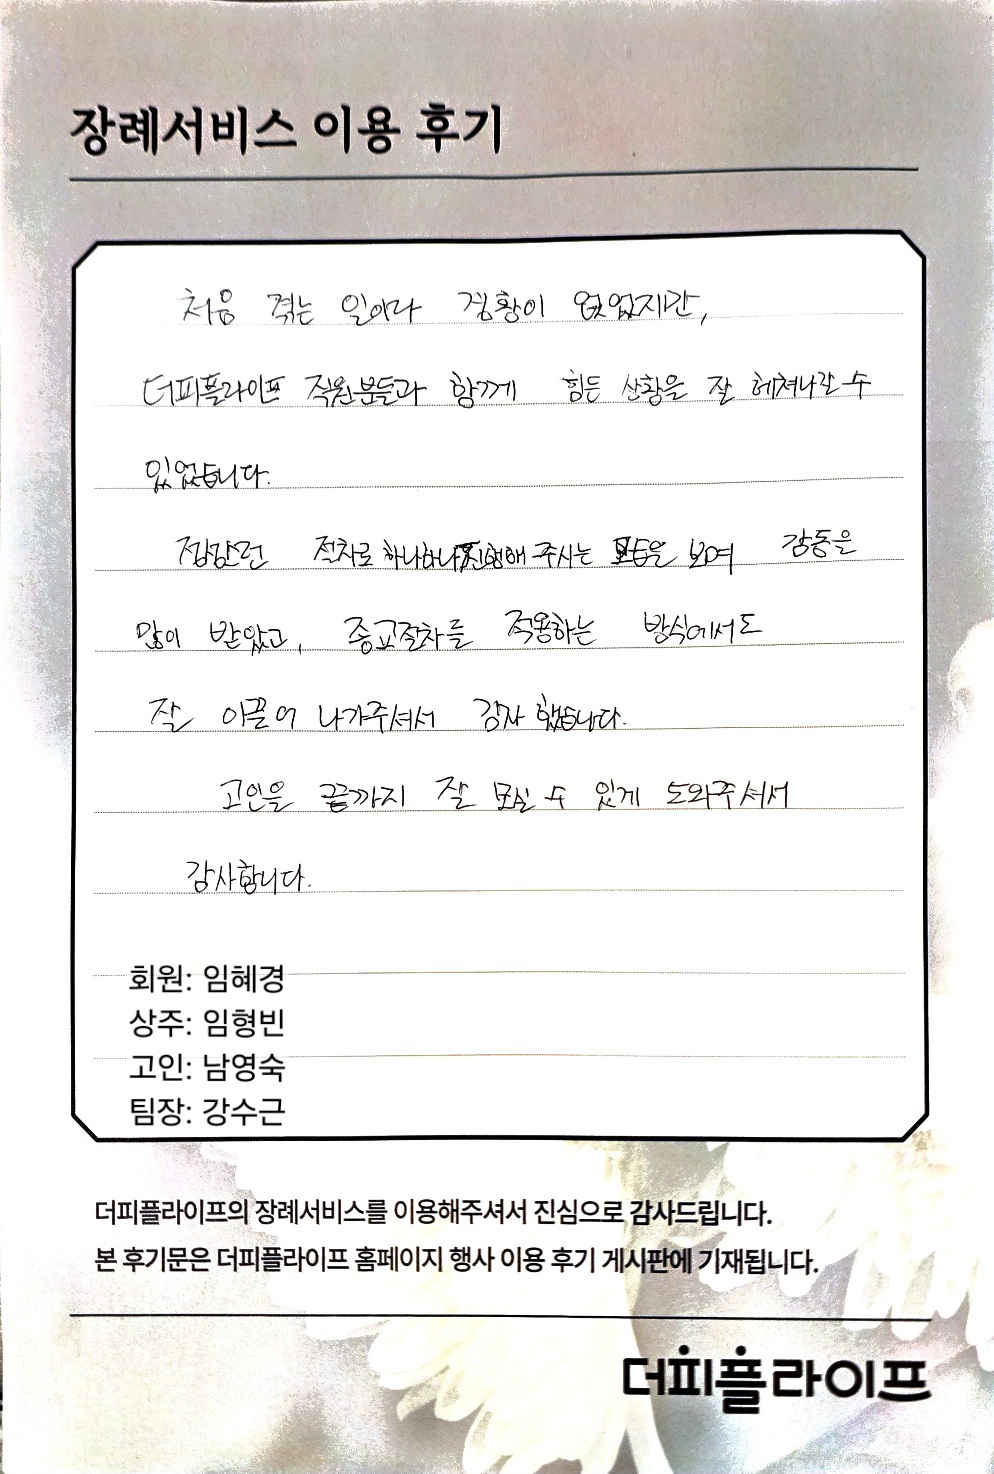 장례서비스 이용 후기
처음 겪는 일이라 경황이 없었지만,
더피플라이프 직원분들과 함께 힘든 상황을 잘 헤쳐나갈 수
있었습니다.
절차로 하나하나 진행해 주시는 모습을 보며 감동을
많이 받았고, 종교절차를 적용하는 방식에서도
잘 이끌어 나가주셔서 감사 했습니다.
고인을 끝까지 잘 모실 수 있게 도와주셔서
감사합니다.
회원: 임혜경
상주: 임형빈
고인: 남영숙
팀장: 강수근
더피플라이프의 장례서비스를 이용해주셔서 진심으로 감사드립니다.
본 후기문은 더피플라이프 홈페이지 행사 이용 후기 게시판에 기재됩니다.
더피플라이프